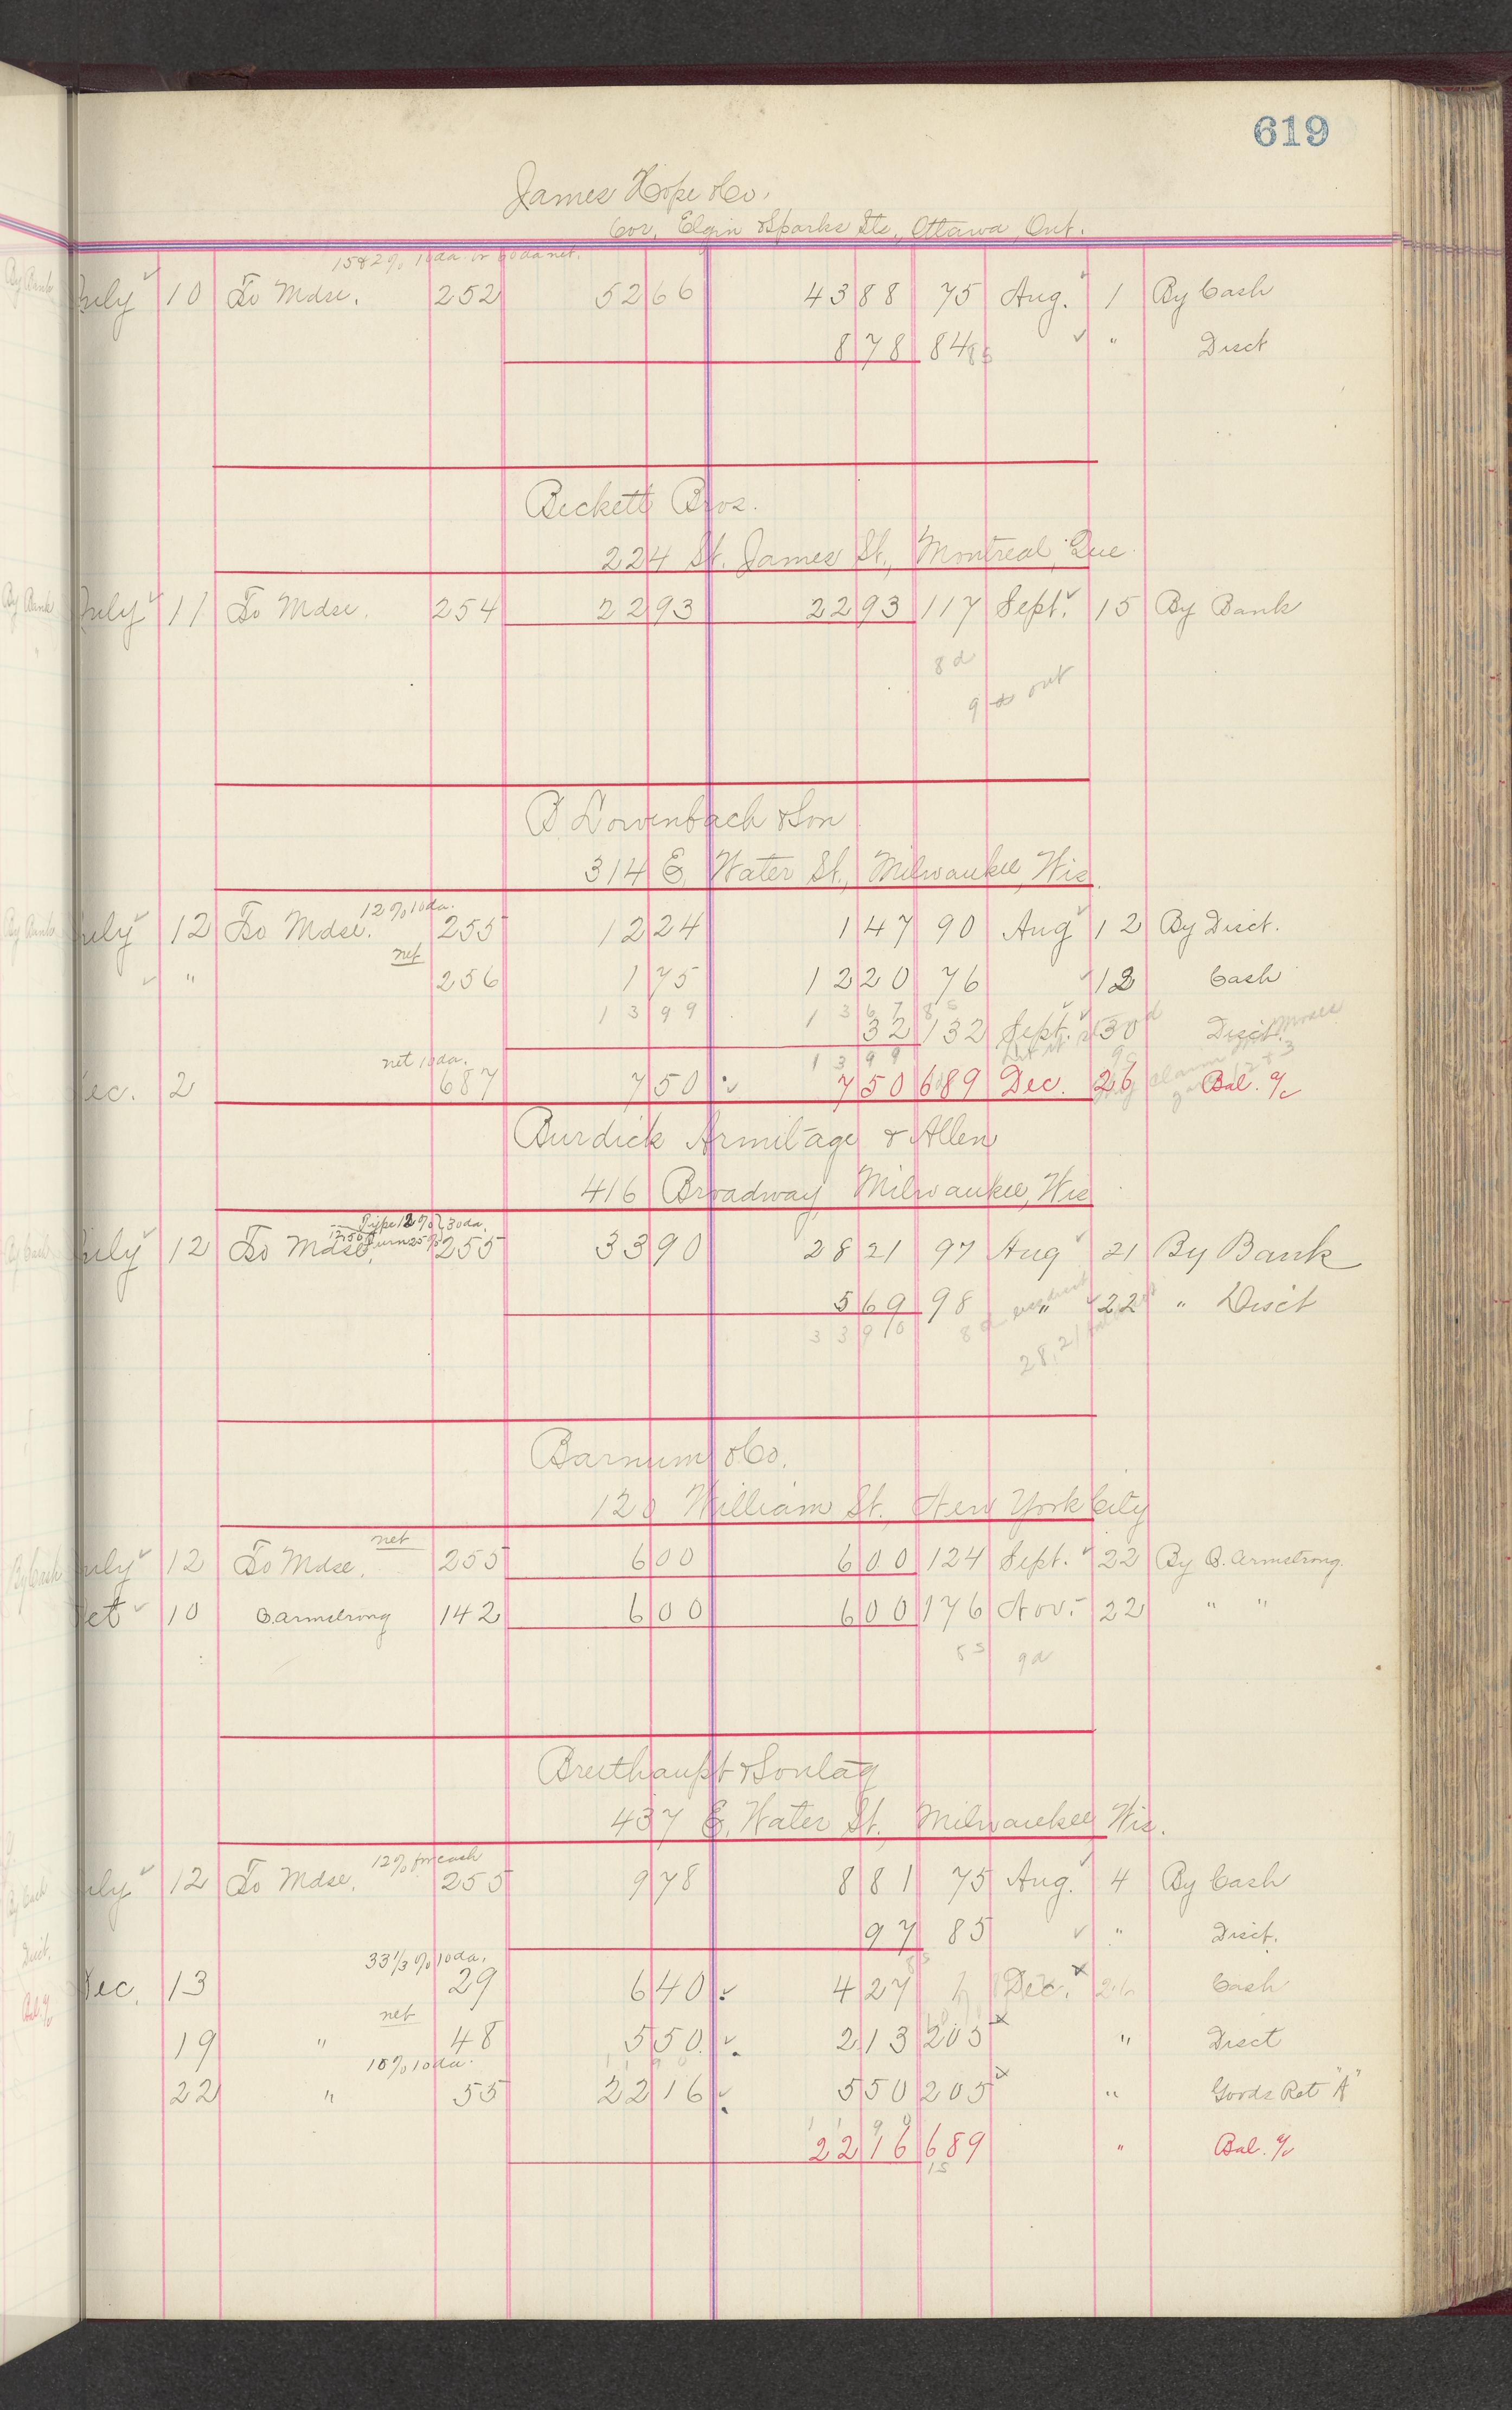 619
James Hope & Co.
Cor. Elgin & Sparks Sts., Ottawa, Ont.
15 & 2% 10 da. or 60 da net.
July 10 To Mdse. 252 5266 4388 75 Aug. 1 By Cash
878 84 85 " Disct
Beckett Bros.
224 St. James St., Montreal, Que.
July 11 To Mdse. 254 2293 2293 117 Sept. 15 By Bank
8 d
9 out
B. Lowenbach & Son
314 E. Water St., Milwaukee, Wis.
12% 10 da.
July 12 To Mdse. 255 1224 147 90 Aug 12 By Disct.
net
" 256 175 1220 76 12 Cash
1399 1367 85
32 132 Sept. 30 Disct.
1399
net 10 da.
Dec. 2 687 750 750 689 Dec. 26 Bal. a/c
Burdick Armitage & Allen
416 Broadway, Milwaukee, Wis
Type 12% 30 da.
July 12 To Mdse. 255 3390 2821 97 Aug 21 By Bank
569 98 " 22 " Disct
3390 8
28,21
Barnum & Co.
120 William St., New York City
net
July 12 To Mdse. 255 600 600 124 Sept. 22 By B. Armstrong.
Oct 10 B. Armstrong 142 600 600 176 Nov. 22 " "
8 s 9 d
Breithaupt & Sontag
437 E. Water St., Milwaukee, Wis.
12% for cash
July 12 To Mdse. 255 978 881 75 Aug. 4 By Cash
97 85 " Disct.
33 1/3 % 10 da.
Dec. 13 29 640 427 Dec. 26 Cash
net
19 " 48 550 213 205 " Disct
10% 10 da.
22 " 55 2216 550 205 " Goods Ret "A"
2216 689 " Bal. a/c
15